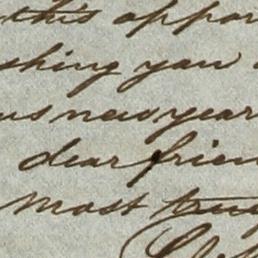 this oppor
shing you
us new year
dear frien
most true